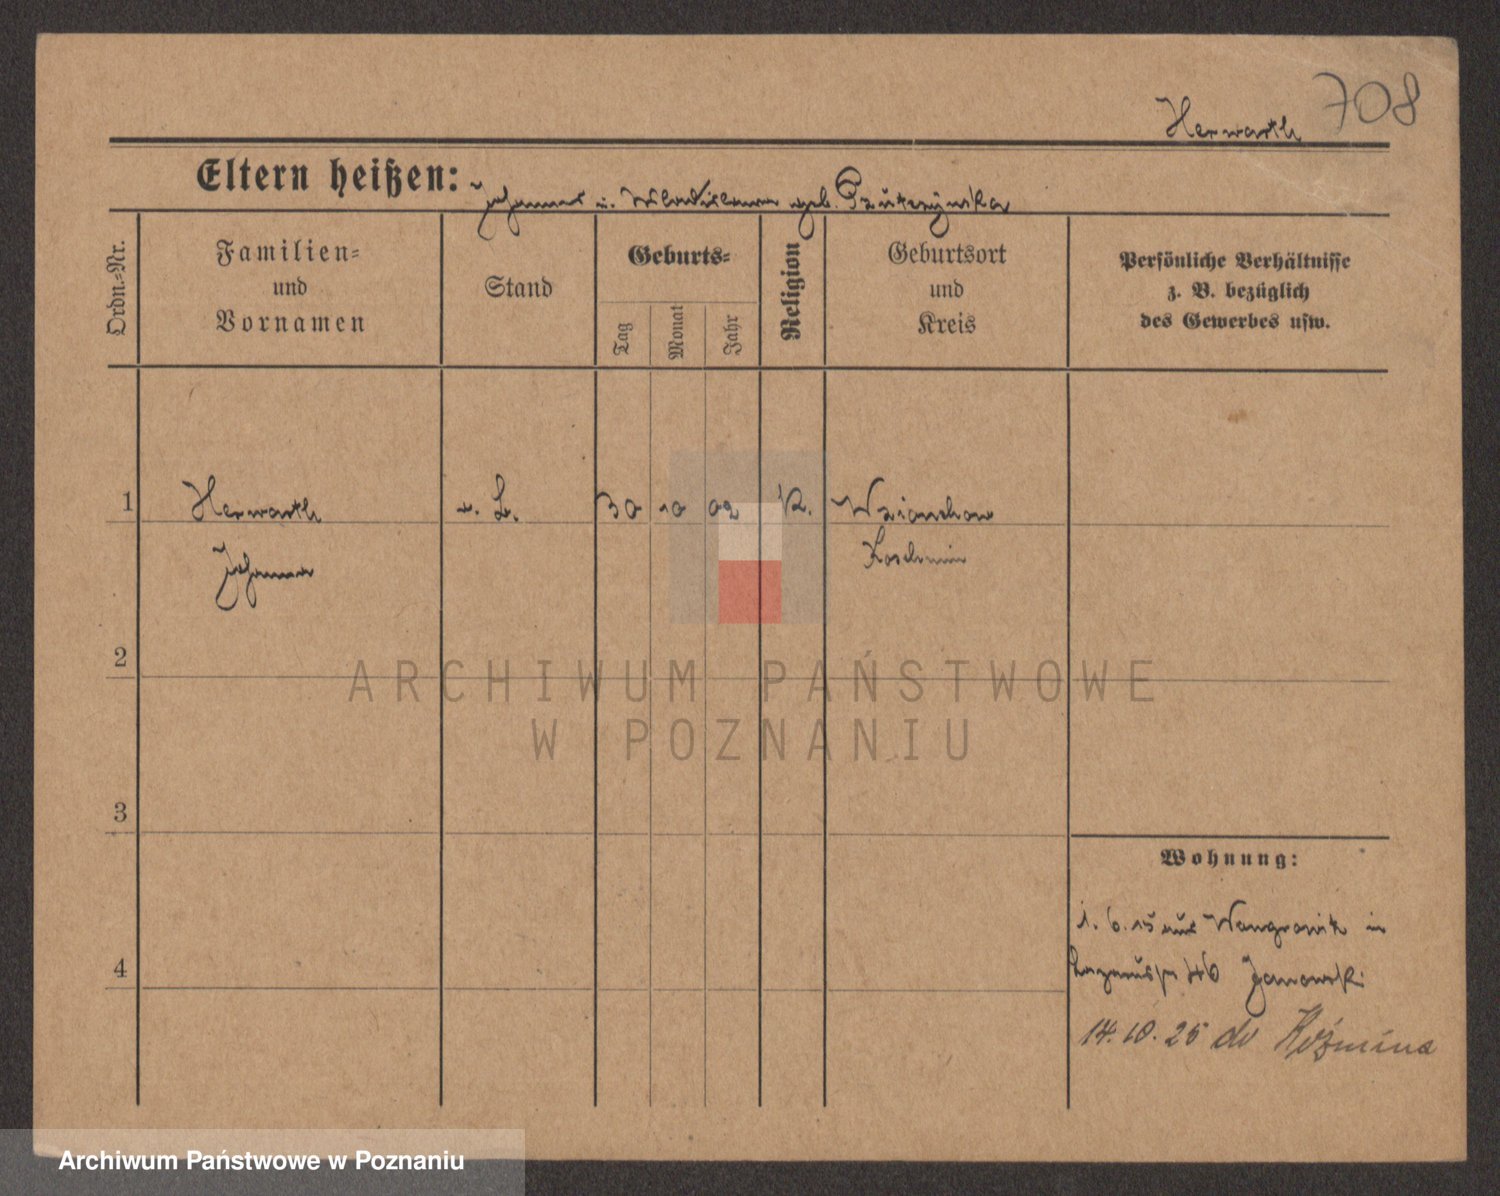 708
Herwarth
Eltern heißen: Johannes u. Wladislawa geb.
Ordn.-Nr.
Familien-
und
Vornamen
Stand
Geburts-
Tag
Monat
Jahr
Religion
Geburtsort
und
Kreis
Persönliche Verhältnisse
z. B. bezüglich
des Gewerbes usw.
1 Herwarth 30 10 02 K. Wzionchow
Johanna Koschmin
2
3
4
Wohnung:
1. 6. 15 aus Wongrowitz in
46 Janowski
14. 10. 25 do Koźmina
ARCHIWUM PAŃSTWOWE
W POZNANIU
Archiwum Państwowe w Poznaniu